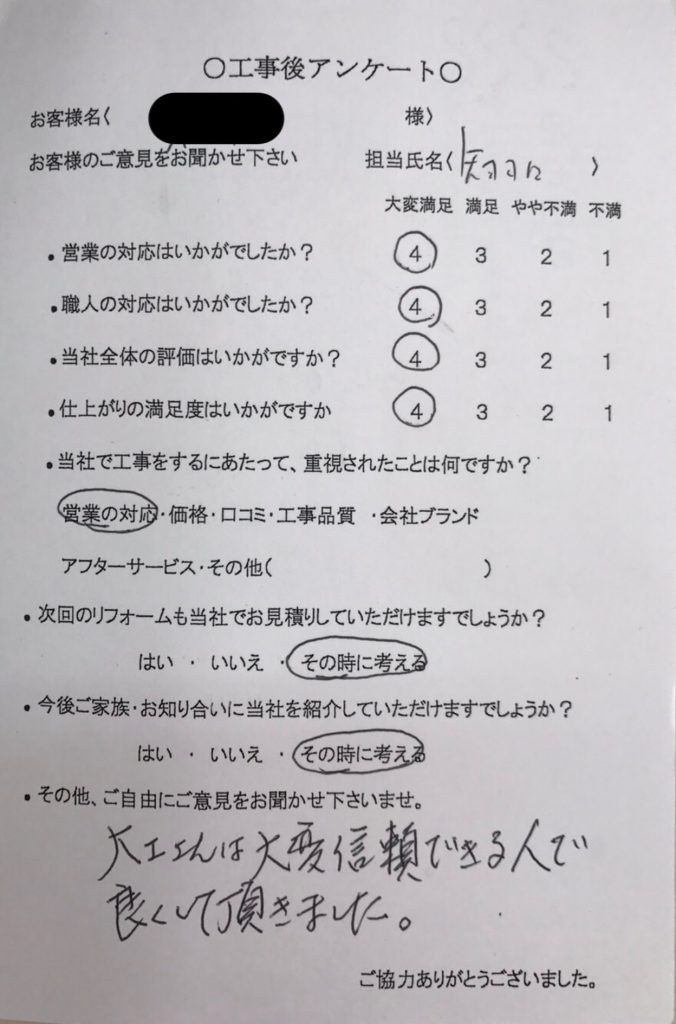 ○工事後アンケート○
お客様名〈 様〉
お客様のご意見をお聞かせ下さい 担当氏名〈 〉
大変満足 満足 やや不満 不満
・営業の対応はいかがでしたか？ 4 3 2 1
・職人の対応はいかがでしたか？ 4 3 2 1
・当社全体の評価はいかがですか？ 4 3 2 1
・仕上がりの満足度はいかがですか 4 3 2 1
・当社で工事をするにあたって、重視されたことは何ですか？
営業の対応・価格・口コミ・工事品質 ・会社ブランド
アフターサービス・その他( )
・次回のリフォームも当社でお見積りしていただけますでしょうか？
はい ・ いいえ ・ その時に考える
・今後ご家族・お知り合いに当社を紹介していただけますでしょうか？
はい ・ いいえ ・ その時に考える
・その他、ご自由にご意見をお聞かせ下さいませ。
大工さんは大変信頼できる人で
良くして頂きました。
ご協力ありがとうございました。